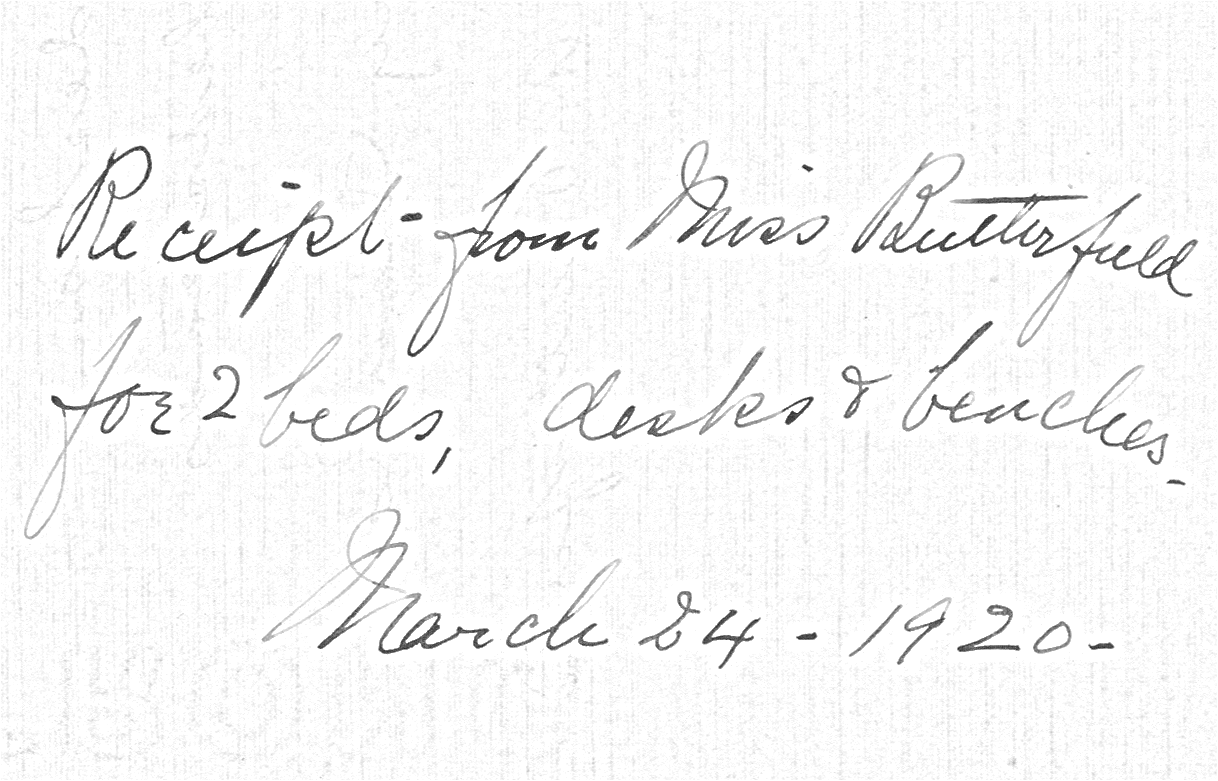 Receipt - from Miss Butterfield
for 2 beds, desks & benches -
March 24 - 1920 -